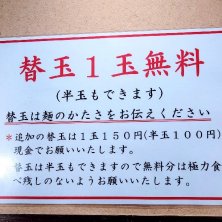 替玉１玉無料
(半玉もできます)
替玉は麺のかたさをお伝えください
＊追加の替玉は１玉１５０円(半玉１００円)
現金でお願いいたします。
替玉は半玉もできますので無料分は極力食
べ残しのないようお願いいたします。